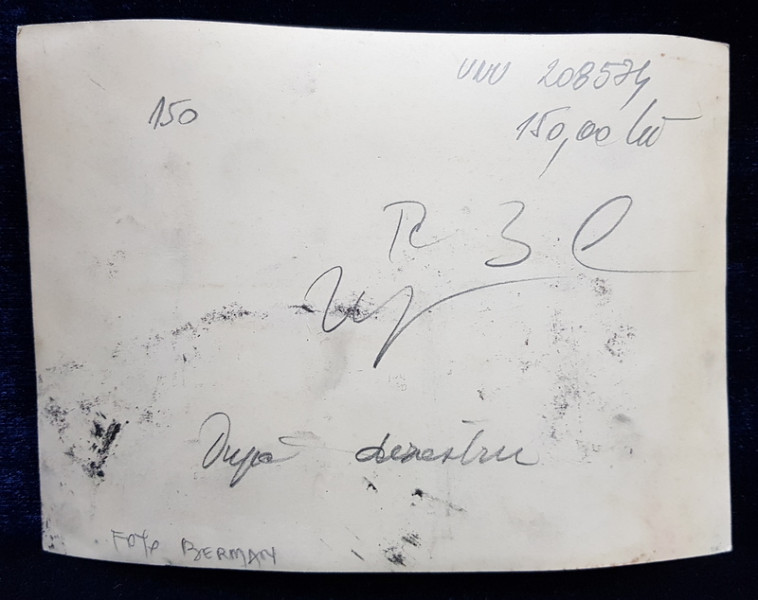 150
208574
150,00 lei
R 3 C
După dezastru
Foto BERMAN